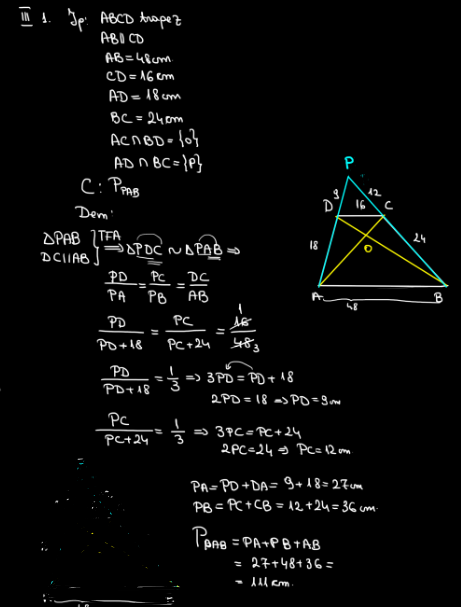 III 1. Jp: ABCD trapez
AB∥CD
AB=48cm
CD=16cm
AD=18cm
BC=24cm
AC∩BD={O}
AD∩BC={P}
C: P_PAB
Dem:
ΔPAB
DC∥AB } TFA ⇒ ΔPDC ~ ΔPAB ⇒
PD/PA = PC/PB = DC/AB
PD/PD+18 = PC/PC+24 = 16/48 1 3
PD/PD+18 = 1/3 ⇒ 3PD=PD+18
2PD=18 ⇒ PD=9cm
PC/PC+24 = 1/3 ⇒ 3PC=PC+24
2PC=24 ⇒ PC=12cm
PA=PD+DA=9+18=27cm
PB=PC+CB=12+24=36cm
P_PAB = PA+PB+AB
= 27+48+36=
= 111cm.
P
9 12
D 16 C
O
18 24
A B
48